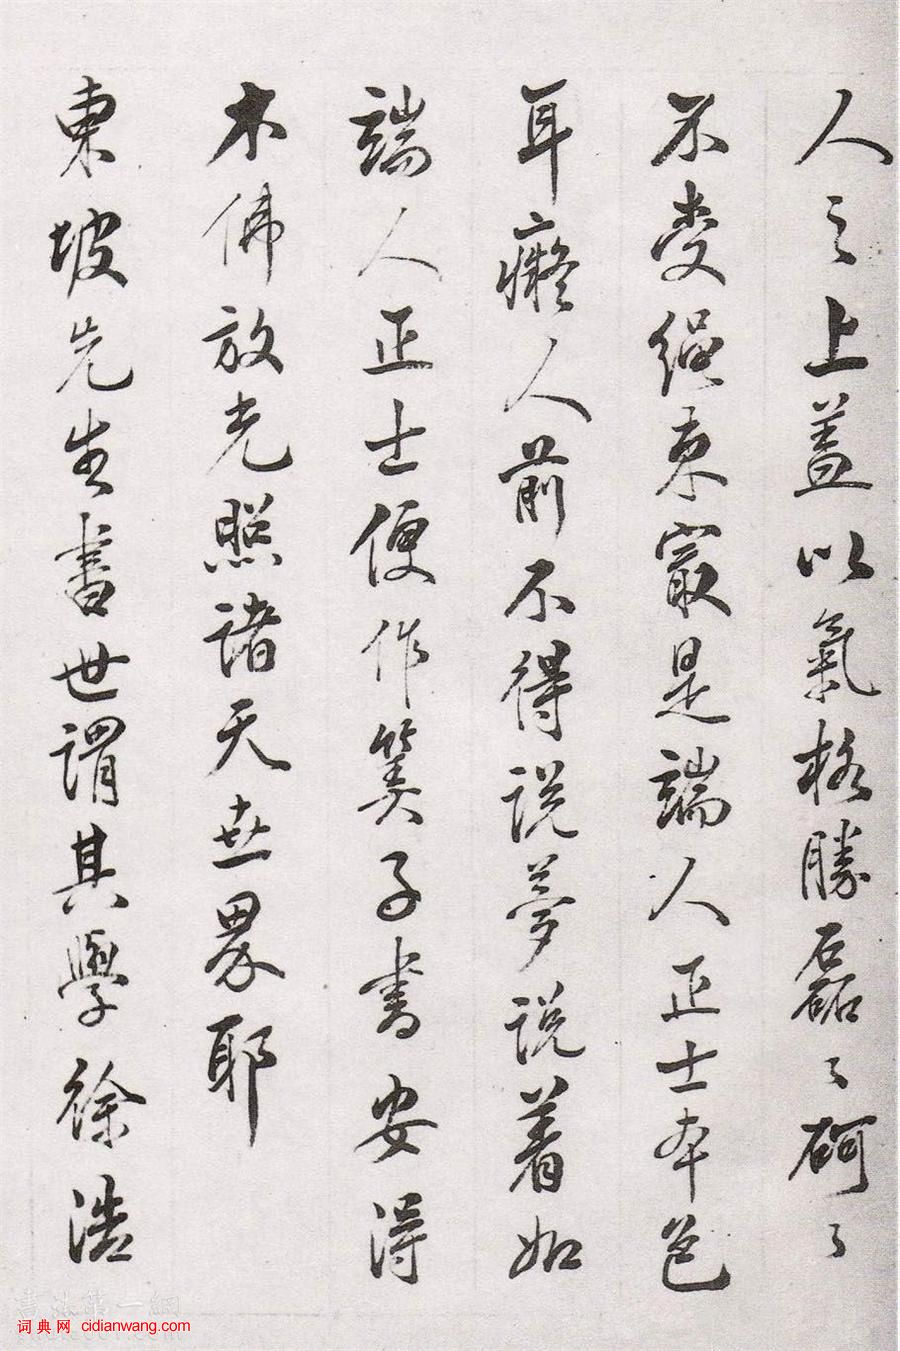 人之上盖以氣格勝磊々砢々
不受繩束寂是端人正士本色
耳癡人前不得说夢说着如
端人正士便作笑子書安得
木佛放光照諸天世界耶
東坡先生書世谓其學徐浩
書法第一網
词典网 cidianwang.com